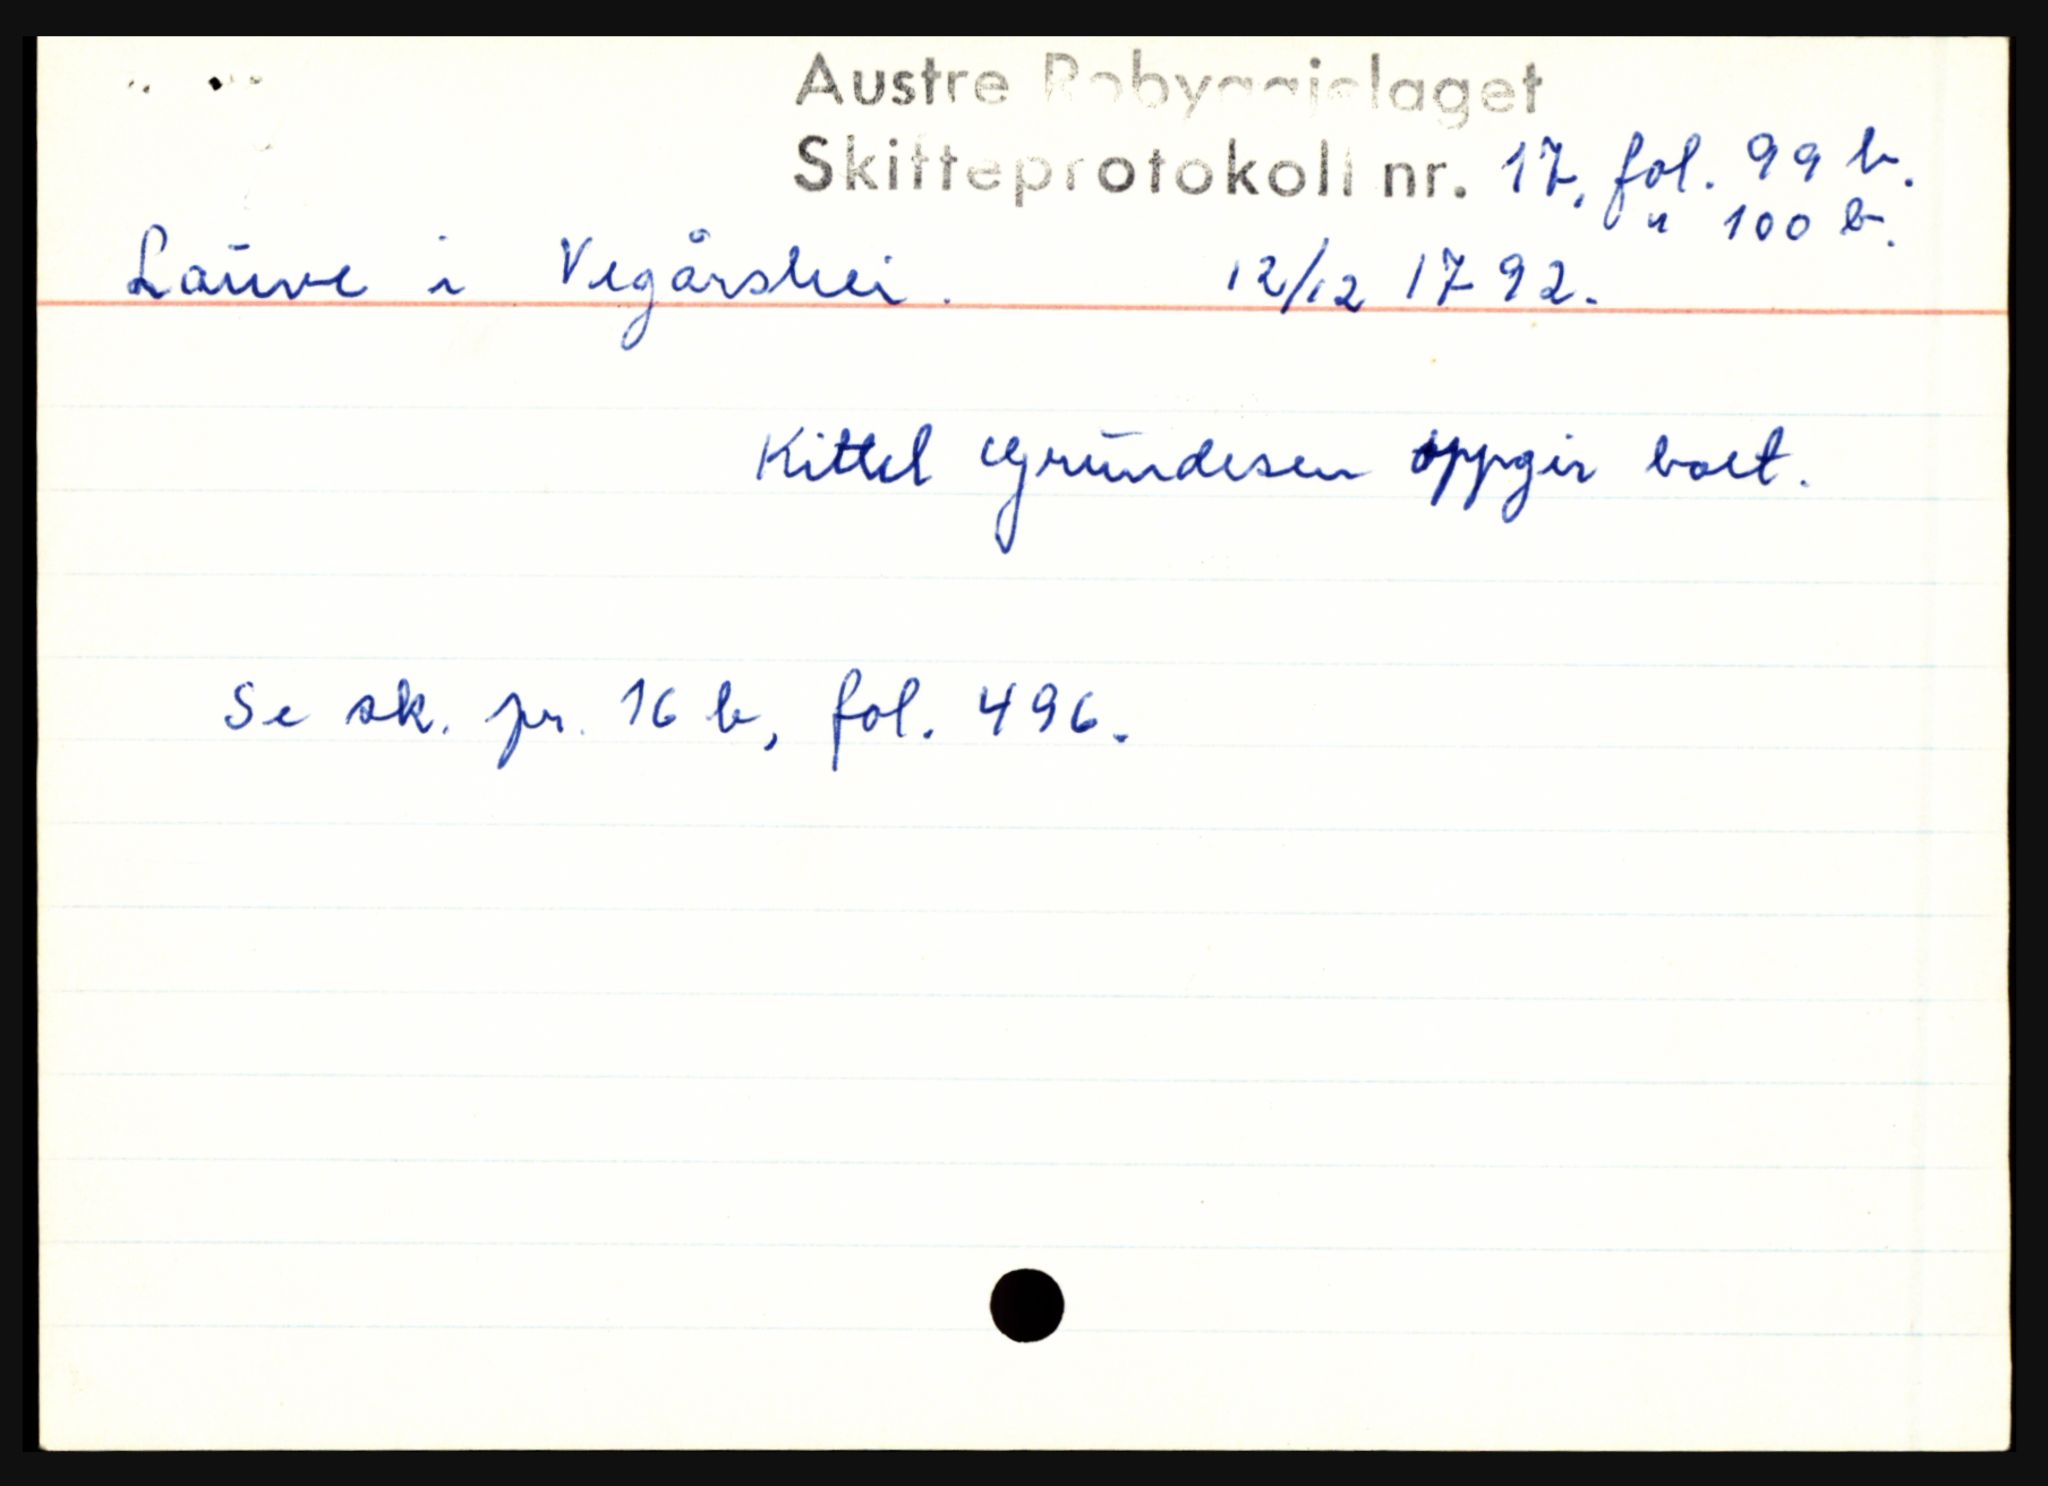 Austre Robyggjelaget
Skifteprotokoll nr. 17, fol. 99 b.
" 100 b.
Lauve i Vegårshei. 12/12 1792.
Kittel Grundesen oppgir boet.
Se sk. pr. 16 b, fol. 496.